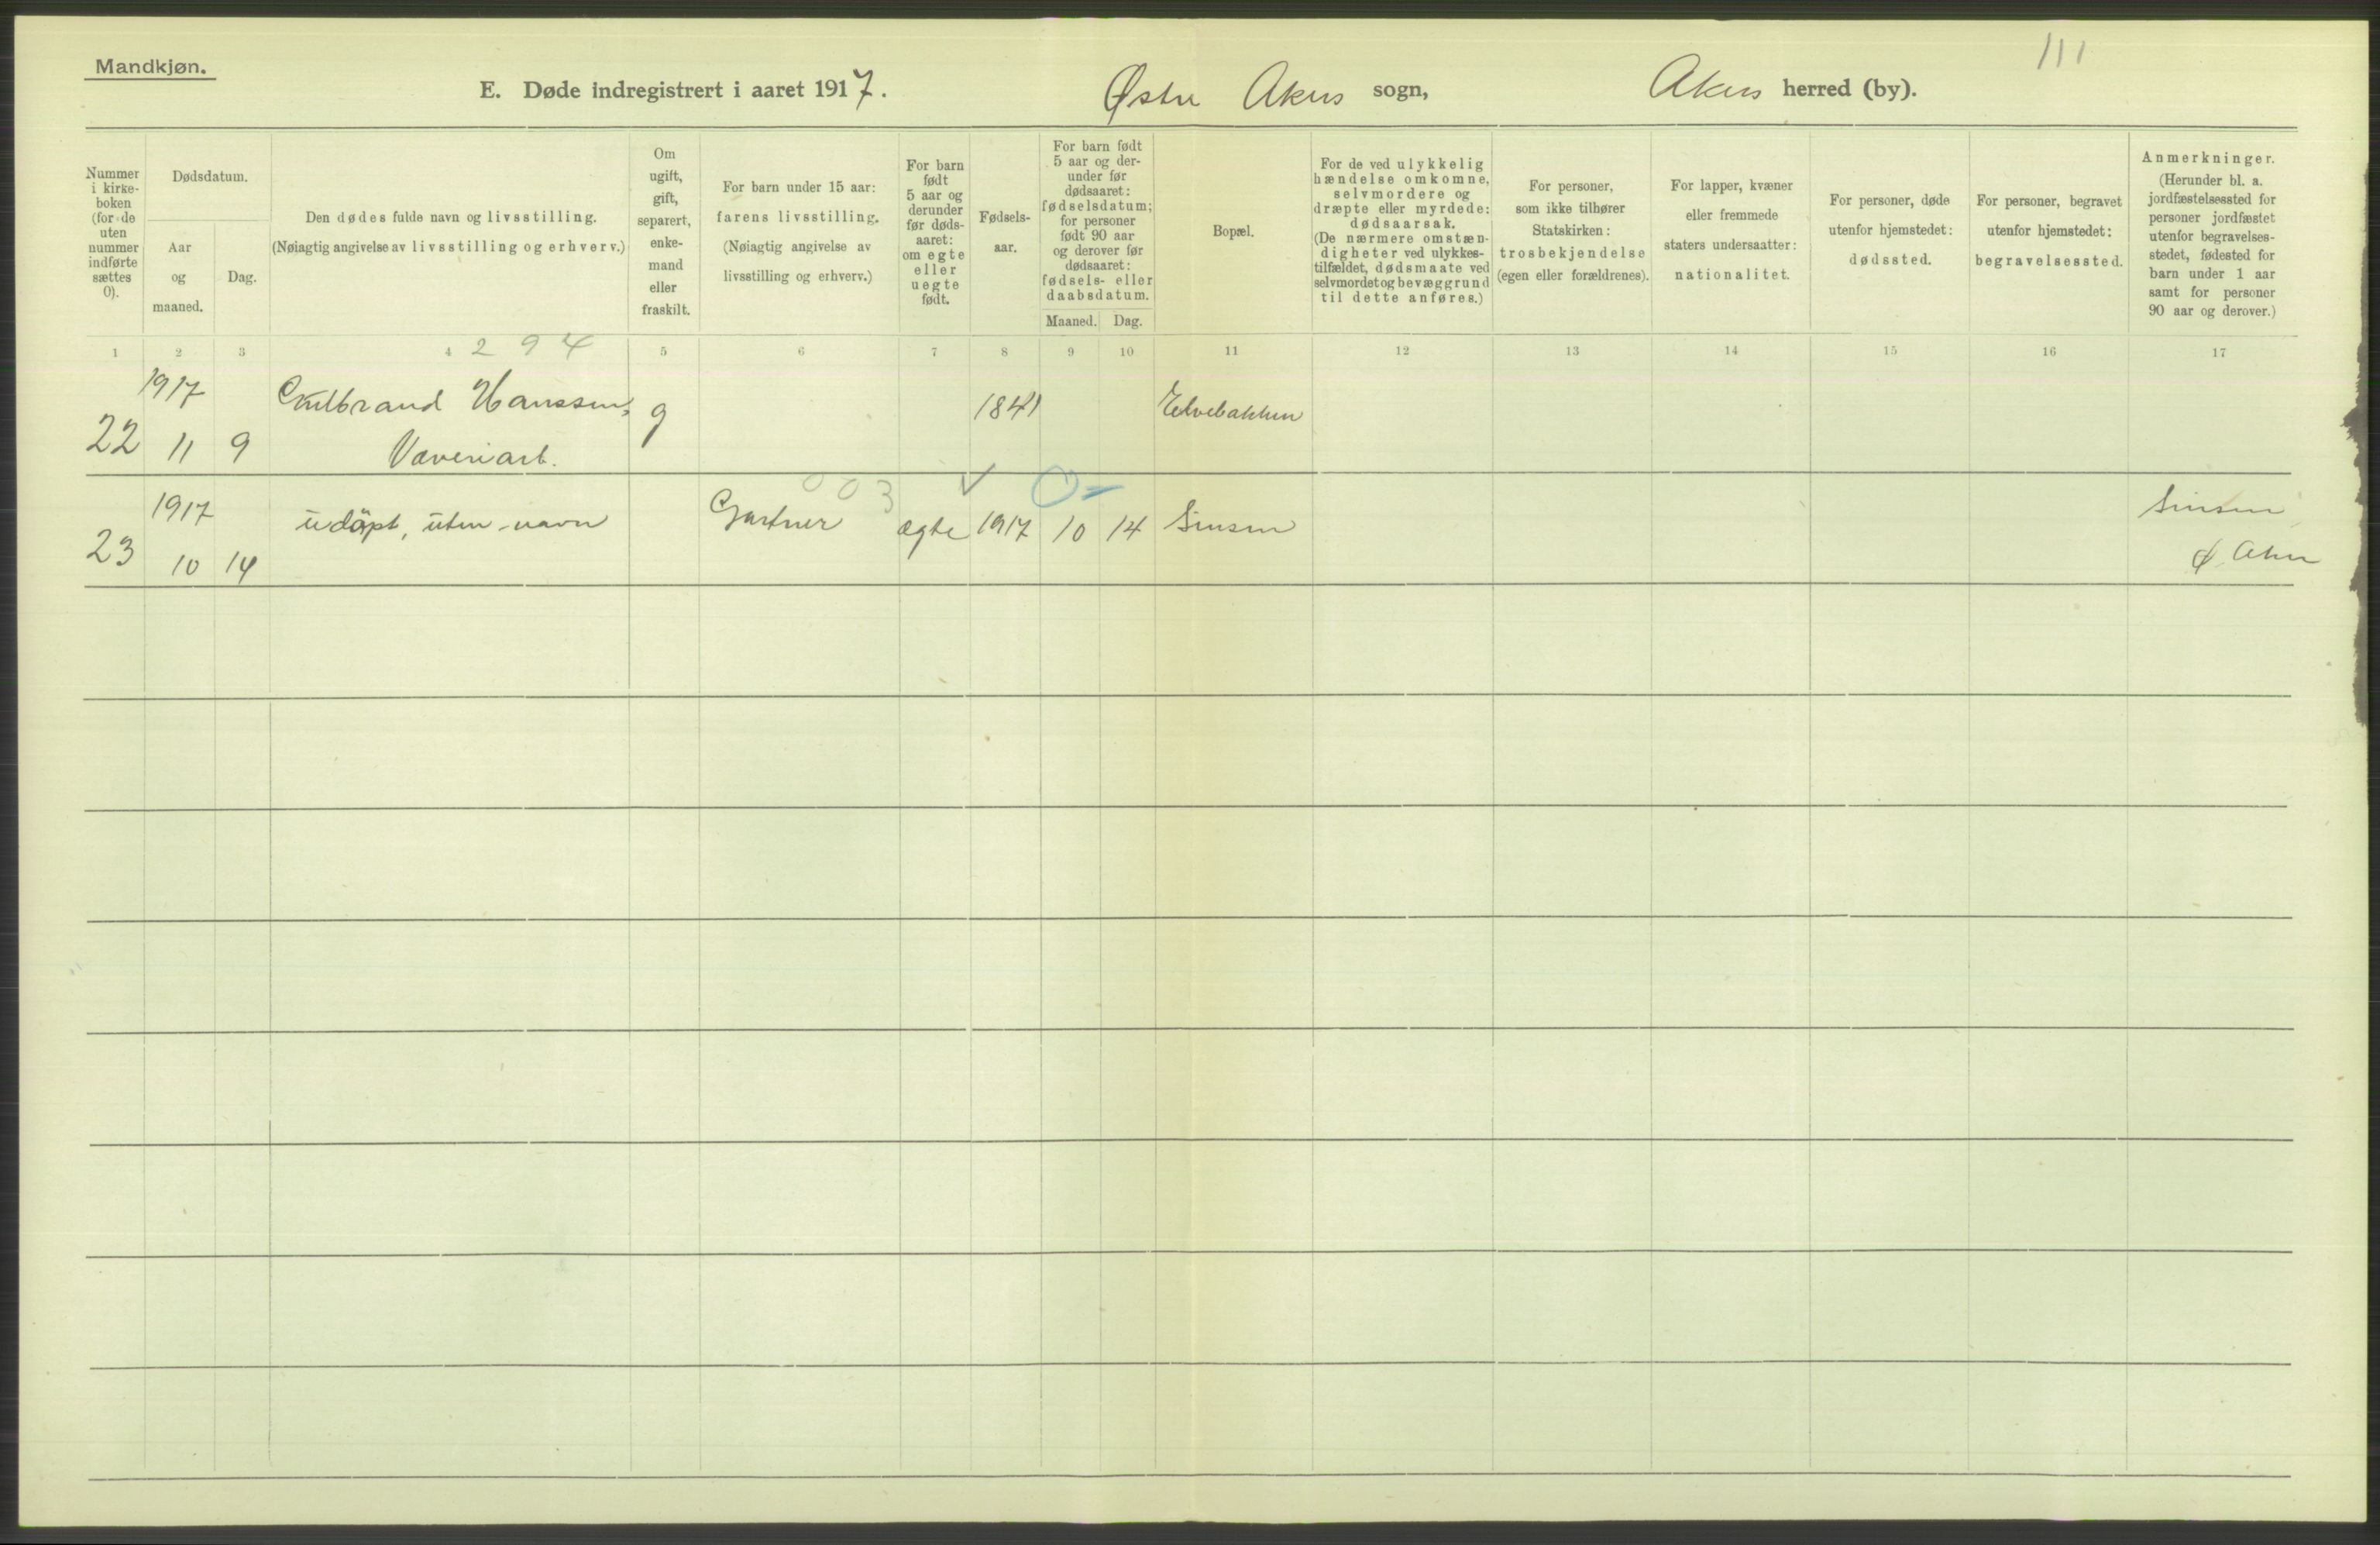 Mandkjøn.
111
E. Døde indregistrert i aaret 1917.
Østre Akers sogn,
Akers herred (by).
Nummer
i kirke-
boken
(for de
uten
nummer
indførte
sættes
0).
Dødsdatum.
Aar
og
maaned.
Dag.
Den dødes fulde navn og livsstilling.
(Nøiagtig angivelse av livsstilling og erhverv.)
Om
ugift,
gift,
separert,
enke-
mand
eller
fraskilt.
For barn under 15 aar:
farens livsstilling.
(Nøiagtig angivelse av
livsstilling og erhverv.)
For barn
født
5 aar og
derunder
før døds-
aaret:
om egte
eller
uegte
født.
Fødsels-
aar.
For barn født
5 aar og der-
under før
dødsaaret:
fødselsdatum;
for personer
født 90 aar
og derover før
dødsaaret:
fødsels- eller
daabsdatum.
Maaned. Dag.
Bopæl.
For de ved ulykkelig
hændelse omkomne,
selvmordere og
dræpte eller myrdede:
dødsaarsak.
(De nærmere omstæn-
digheter ved ulykkes-
tilfældet, dødsmaate ved
selvmordet og bevæggrund
til dette anføres.)
For personer,
som ikke tilhører
Statskirken:
trosbekjendelse
(egen eller forældrenes).
For lapper, kvæner
eller fremmede
staters undersaatter:
nationalitet.
For personer, døde
utenfor hjemstedet:
dødssted.
For personer, begravet
utenfor hjemstedet:
begravelsessted.
Anmerkninger.
(Herunder bl. a.
jordfæstelsessted for
personer jordfæstet
utenfor begravelses-
stedet, fødested for
barn under 1 aar
samt for personer
90 aar og derover.)
1 2 3 4 5 6 7 8 9 10 11 12 13 14 15 16 17
294
1917
22 11 9
Gulbrand Hanssen,
Væveriarb.
g
1841
Elvebakken
003
1917
23 10 14
udöpt, uten navn
Gartner
ægte 1917 10 14 Sinsen
Sinsen
Ø. Aker